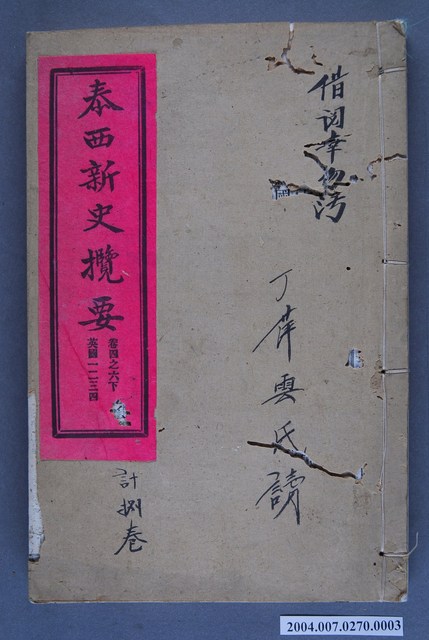 借閱幸勿污
丁萍雲氏讀
泰西新史攬要
卷四之六下
英國一二三四
計捌卷
2004.007.0270.0003